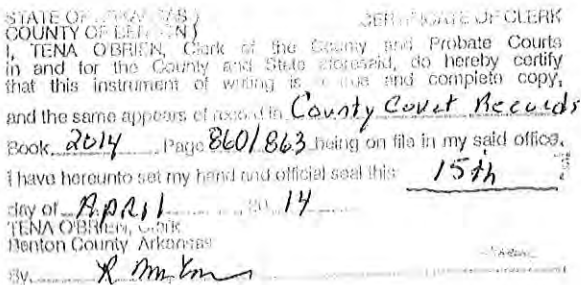 STATE OF ARKANSAS )
COUNTY OF BENTON )
CERTIFICATE OF CLERK
I, TENA O'BRIEN, Clerk of the County and Probate Courts
in and for the County and State aforesaid, do hereby certify
that this instrument of writing is a true and complete copy,
and the same appears of record in County Court Records
Book 2014 Page 860/863 being on file in my said office.
I have hereunto set my hand and official seal this 15th
day of April 20 14
TENA O'BRIEN, Clerk
Benton County Arkansas
By